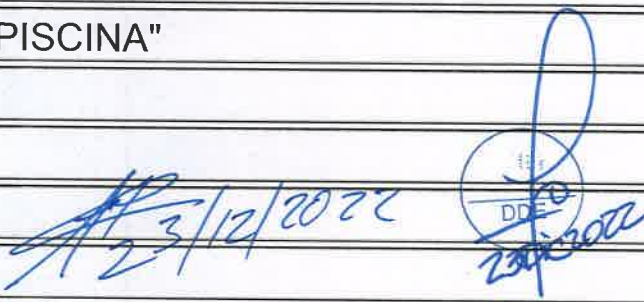 PISCINA"
23/12/2022
DDE
23 Dic 2022